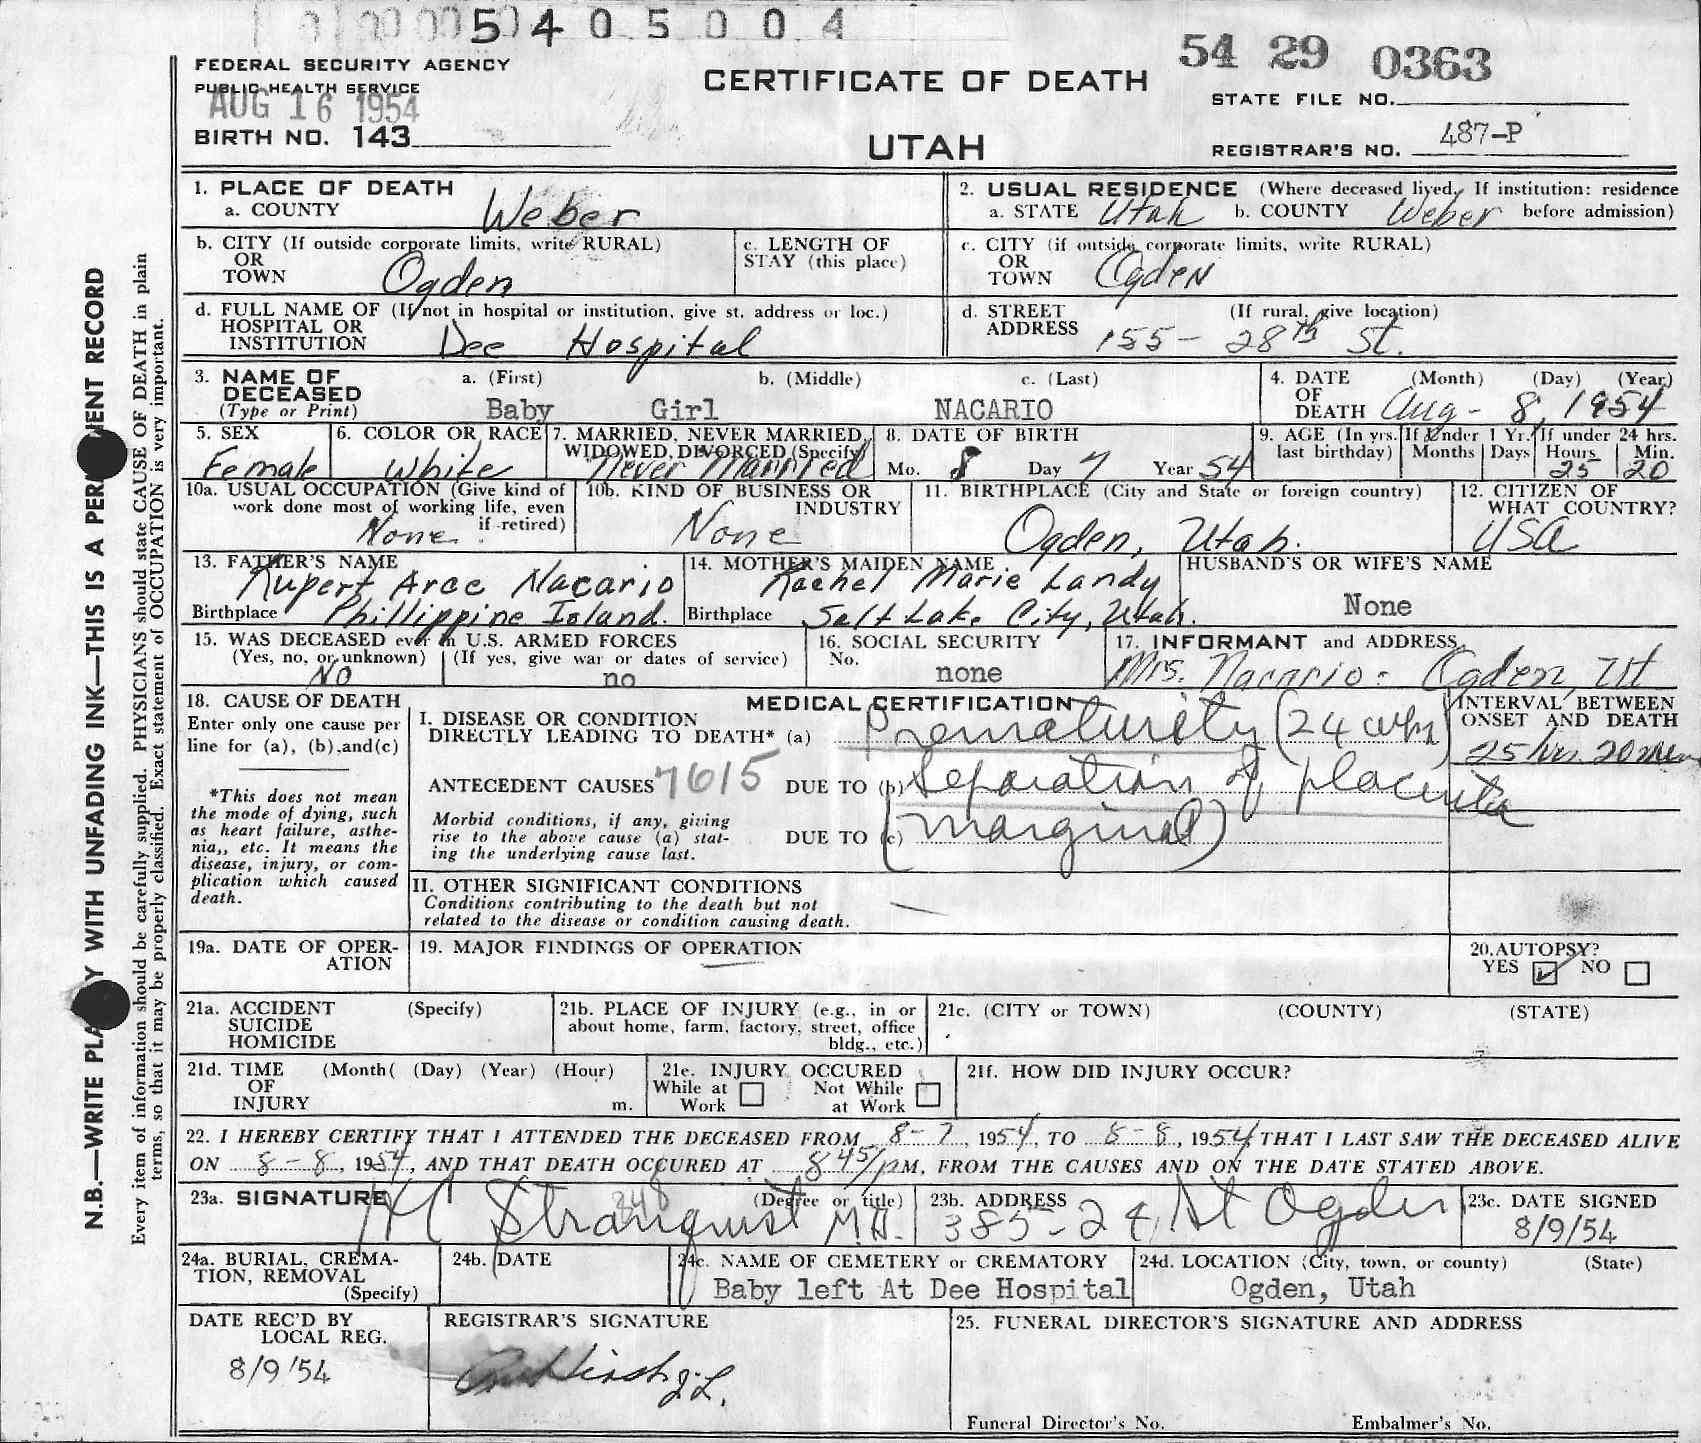 5405004
54 29 0363
FEDERAL SECURITY AGENCY
PUBLIC HEALTH SERVICE
AUG 16 1954
BIRTH NO. 143
CERTIFICATE OF DEATH
UTAH
STATE FILE NO.
REGISTRAR'S NO. 487-P
N.B.—WRITE PLA Y WITH UNFADING INK—THIS IS A PER ENT RECORD
Every item of information should be carefully supplied. PHYSICIANS should state CAUSE OF DEATH in plain
terms, so that it may be properly classified. Exact statement of OCCUPATION is very important.
1. PLACE OF DEATH
a. COUNTY Weber
2. USUAL RESIDENCE (Where deceased lived. If institution: residence
a. STATE Utah b. COUNTY Weber before admission)
b. CITY (If outside corporate limits, write RURAL)
OR
TOWN Ogden
c. LENGTH OF
STAY (this place)
c. CITY (if outside corporate limits, write RURAL)
OR
TOWN Ogden
d. FULL NAME OF (If not in hospital or institution, give st. address or loc.)
HOSPITAL OR
INSTITUTION Dee Hospital
d. STREET (If rural, give location)
ADDRESS 155- 28th St.
3. NAME OF
DECEASED
(Type or Print)
a. (First) b. (Middle) c. (Last)
Baby Girl NACARIO
4. DATE (Month) (Day) (Year)
OF
DEATH Aug- 8, 1954
5. SEX
Female
6. COLOR OR RACE
White
7. MARRIED, NEVER MARRIED,
WIDOWED, DIVORCED (Specify)
Never Married
8. DATE OF BIRTH
Mo. 8 Day 7 Year 54
9. AGE (In yrs. last birthday)
If Under 1 Yr.
Months Days
If under 24 hrs.
Hours Min.
25 20
10a. USUAL OCCUPATION (Give kind of
work done most of working life, even
if retired)
None
10b. KIND OF BUSINESS OR
INDUSTRY
None
11. BIRTHPLACE (City and State or foreign country)
Ogden, Utah.
12. CITIZEN OF
WHAT COUNTRY?
USA
13. FATHER'S NAME
Rupert Arce Nacario
Birthplace Phillippine Island.
14. MOTHER'S MAIDEN NAME
Rachel Marie Landy
Birthplace Salt Lake City, Utah.
HUSBAND'S OR WIFE'S NAME
None
15. WAS DECEASED ever in U.S. ARMED FORCES
(Yes, no, or unknown) (If yes, give war or dates of service)
No no
16. SOCIAL SECURITY
No.
none
17. INFORMANT and ADDRESS
Mrs. Nacario - Ogden, Ut
18. CAUSE OF DEATH
Enter only one cause per
line for (a), (b), and (c)
*This does not mean
the mode of dying, such
as heart failure, asthe-
nia,, etc. It means the
disease, injury, or com-
plication which caused
death.
MEDICAL CERTIFICATION
I. DISEASE OR CONDITION
DIRECTLY LEADING TO DEATH* (a) Prematurity (24 wks)
ANTECEDENT CAUSES 7615 DUE TO (b) Separation of placenta
Morbid conditions, if any, giving
rise to the above cause (a) stat-
ing the underlying cause last.
DUE TO (c) (marginal)
INTERVAL BETWEEN
ONSET AND DEATH
25 hrs. 20 min
II. OTHER SIGNIFICANT CONDITIONS
Conditions contributing to the death but not
related to the disease or condition causing death.
19a. DATE OF OPER-
ATION
19. MAJOR FINDINGS OF OPERATION
20. AUTOPSY?
YES ☑ NO ☐
21a. ACCIDENT (Specify)
SUICIDE
HOMICIDE
21b. PLACE OF INJURY (e.g., in or
about home, farm, factory, street, office
bldg., etc.)
21c. (CITY or TOWN) (COUNTY) (STATE)
21d. TIME (Month( (Day) (Year) (Hour)
OF
INJURY m.
21e. INJURY OCCURED
While at Work ☐ Not While at Work ☐
21f. HOW DID INJURY OCCUR?
22. I HEREBY CERTIFY THAT I ATTENDED THE DECEASED FROM 8-7, 1954, TO 8-8, 1954, THAT I LAST SAW THE DECEASED ALIVE
ON 8-8, 1954, AND THAT DEATH OCCURED AT 8 45/pM, FROM THE CAUSES AND ON THE DATE STATED ABOVE.
23a. SIGNATURE (Degree or title)
Stranquist M.D.
848
23b. ADDRESS
385-24 St Ogden
23c. DATE SIGNED
8/9/54
24a. BURIAL, CREMA-
TION, REMOVAL
(Specify)
24b. DATE
24c. NAME OF CEMETERY or CREMATORY
Baby left At Dee Hospital
24d. LOCATION (City, town, or county) (State)
Ogden, Utah
DATE REC'D BY
LOCAL REG.
8/9/54
REGISTRAR'S SIGNATURE
25. FUNERAL DIRECTOR'S SIGNATURE AND ADDRESS
Funeral Director's No. Embalmer's No.